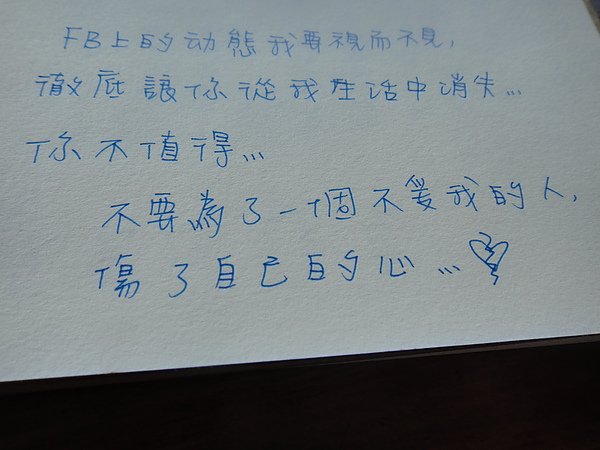 FB上的动態我要視而不見,
徹底讓你從我生活中消失...
你不值得...
不要為了一個不愛我的人,
傷了自己的心...